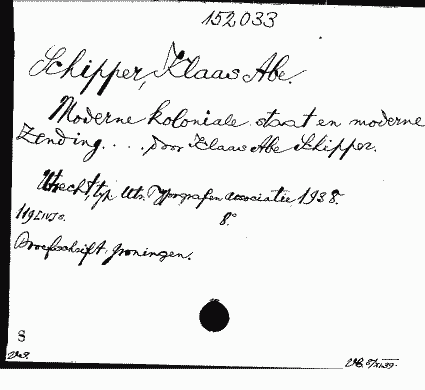 152033
Schipper, Klaas Abe.
Moderne koloniale staat en moderne
Zending .... door Klaas Abe Schipper.
Utrecht, typ. Utr. Typografen associatie, 1938.
8°
Proefschrift, Groningen.
S